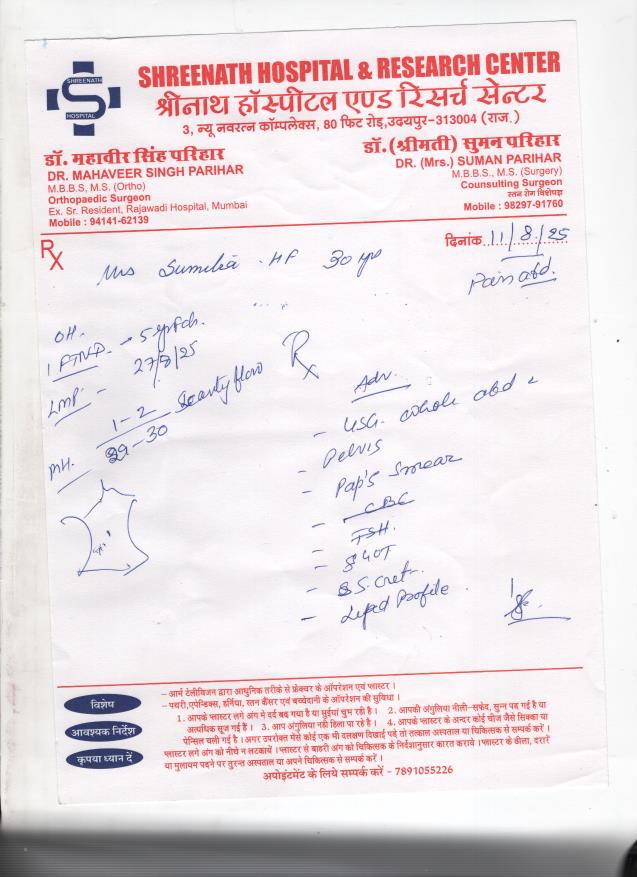 SHREENATH
S
HOSPITAL
SHREENATH HOSPITAL & RESEARCH CENTER
श्रीनाथ हॉस्पीटल एण्ड रिसर्च सेन्टर
3, न्यू नवरत्न कॉम्पलेक्स, 80 फिट रोड़, उदयपुर-313004 (राज.)
डॉ. महावीर सिंह परिहार
DR. MAHAVEER SINGH PARIHAR
M.B.B.S, M.S. (Ortho)
Orthopaedic Surgeon
Ex. Sr. Resident, Rajawadi Hospital, Mumbai
Mobile : 94141-62139
डॉ. (श्रीमती) सुमन परिहार
DR. (Mrs.) SUMAN PARIHAR
M.B.B.S., M.S. (Surgery)
Counsulting Surgeon
स्तन रोग विशेषज्ञ
Mobile : 98297-91760
Rx
दिनांक 11/8/25
Mrs HF 30 yrs
Pain abd.
OH.
1 FTND →
LMP - 27/8/25
MH. 1-2 Scanty flow
29-30
Rx
Adv.
- USG whole abd &
Pelvis
- Pap's Smear
- CBC
- FSH.
- SGOT
- S. Creat.
- Lipid Profile.
विशेष
आवश्यक निर्देश
कृपया ध्यान दें
– आर्म टेलीविजन द्वारा आधुनिक तरीके से फ्रेक्चर के ऑपरेशन एवं प्लास्टर ।
– पथरी,एपेन्डिक्स, हर्निया, स्तन कैंसर एवं बच्चेदानी के ऑपरेशन की सुविधा ।
1. आपके प्लास्टर लगे अंग मे दर्द बढ़ गया है या सुईयां चुभ रही है । 2. आपकी अंगुलिया नीली-सफेद, सुन्न पड़ गई है या
अत्यधिक सूज गई हैं । 3. आप अंगुलिया नही हिला पा रहे है । 4. आपके प्लास्टर के अन्दर कोई चीज जैसे सिक्का या
पेन्सिल चली गई है । अगर उपरोक्त मेंसे कोई एक भी लक्षण दिखाई पड़े तो तत्काल अस्पताल या चिकित्सक से सम्पर्क करें ।
प्लास्टर लगे अंग को नीचे न लटकायें । प्लास्टर से बाहरी अंग को चिकित्सक के निर्देशानुसार कारत करावे । प्लास्टर के ढीला, दरारें
या मुलायम पड़ने पर तुरन्त अस्पताल या अपने चिकित्सक से सम्पर्क करें ।
अपोइंटमेंट के लिये सम्पर्क करें - 7891055226